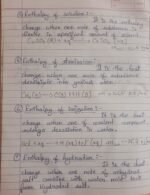 Enthalpy of solution:-
It is the enthalpy
change when one mole of substance is
dissolve in specified amount of solvent
CuSO4 (s) + aq → CuSO4 (aq)
Enthalpy of atomisation:
It is the heat
change when one mole of substance
dissociates into gaseous atoms
Enthalpy of Ionization:-
It is the heat
change when one of
undergo dissociation in water.
HCl + aq → H+ (aq) + Cl- (aq)
Enthalpy of hydration:-
It is the heat
change when one mole of anhydrous
salt combine with water molecules to
form hydrated salt.